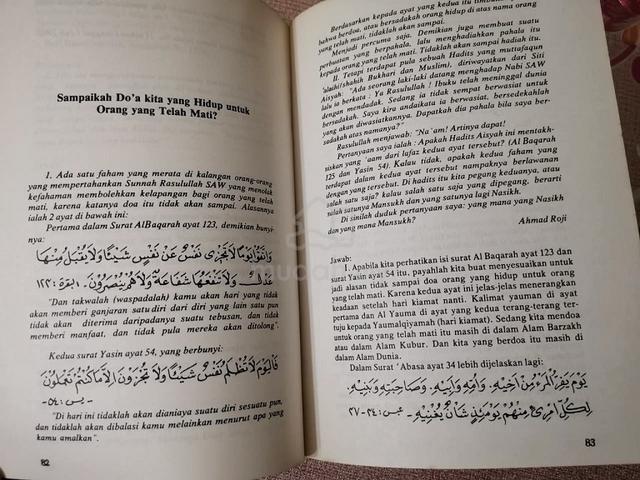 Sampaikah Do'a kita yang Hidup untuk
Orang yang Telah Mati?
1. Ada satu faham yang merata di kalangan orang-orang
yang mempertahankan Sunnah Rasulullah SAW yang menolak
kefahaman membolehkan kelapangan bagi orang yang telah
mati, karena katanya doa itu tidak akan sampai. Alasannya
ialah 2 ayat di bawah ini:
Pertama dalam Surat AlBaqarah ayat 123, demikian bunyi-
nya:
وَاتَّقُوا يَوْمًا لَا تَجْزِى نَفْسٌ عَنْ نَفْسٍ شَيْئًا وَلَا يُقْبَلُ مِنْهَا
عَدْلٌ وَلَا تَنْفَعُهَا شَفَاعَةٌ وَلَا هُمْ يُنْصَرُونَ - البقرة: ١٢٣
"Dan takwalah (waspadalah) kamu akan hari yang tidak
akan memberi ganjaran satu diri dari diri yang lain satu pun
dan tidak akan diterima daripadanya satu tebusan, dan tidak
memberi manfaat, dan tidak pula mereka akan ditolong".
Kedua surat Yasin ayat 54, yang berbunyi:
فَالْيَوْمَ لَا تُظْلَمُ نَفْسٌ شَيْئًا وَلَا تُجْزَوْنَ إِلَّا مَا كُنْتُمْ تَعْمَلُونَ
- يس: ٥٤ -
"Di hari ini tidaklah akan dianiaya suatu diri sesuatu pun,
dan tidaklah akan dibalasi kamu melainken menurut apa yang
kamu amalkan".
82
Berdasarkan kepada ayat yang kedua itu
bahwa berdoa, atau bersadakah orang hidup di atas nama orang
yang telah mati, tidaklah akan sampai.
Menjadi percuma saja. Demikian juga membuat suatu
perbuatan yang berpahala, lalu menghadiahkan pahala itu
kepada orang yang telah mati. Tidaklah akan sampai hadiah itu.
II. Tetapi terdapat pula sebuah Hadits yang muttafaqun
'alaihi (shahih Bukhari dan Muslim), diriwayatkan dari Siti
Aisyah: "Ada seorang laki-laki datang menghadap Nabi SAW
lalu ia berkata : Ya Rasulullah ! Ibuku telah meninggal dunia
dengan mendadak. Sedang ia tidak sempat berwasiat untuk
bersadakah. Saya kira andaikata ia berwasiat, bersedekahlah
yang akan diwasiatkannya. Dapatkah dia pahala bila saya ber-
sadakah atas namanya?"
Rasulullah menjawab: "Na'am! Artinya dapat!
Pertanyaan saya ialah : Apakah Hadits Aisyah ini mentakh-
sishkan yang 'aam dari lafaz kedua ayat tersebut? (Al Baqarah
125 dan Yasin 54). Kalau tidak, apakah kedua faham yang
terdapat dalam kedua ayat tersebut nampaknya berlawanan
dengan yang tersebut. Di hadits itu kita pegang keduanya, atau
salah satu saja? kalau salah satu saja yang dipegang, berarti
salah satunya Mansukh dan yang satunya lagi Nasikh
Di sinilah duduk pertanyaan saya: mana yang Nasikh
dan yang mana Mansukh?
Ahmad Roji
Jawab:
1. Apabila kita perhatikan isi surat Al Baqarah ayat 123 dan
surat Yasin ayat 54 itu, payahlah kita buat menyesuaikan untuk
jadi alasan tidak sampai doa orang yang hidup untuk orang
yang telah mati. Karena kedua ayat ini jelas-jelas menerangkan
keadaan setelah hari kiamat nanti. Kalimat yauman di ayat
pertama dan Al Yauma di ayat yang kedua terang-terang ter-
tuju kepada Yaumalqiyamah (hari kiamat). Sedang kita mendoa
untuk orang yang telah mati itu masih di dalam Alam Barzakh
atau dalam Alam Kubur. Dan kita yang mendoa itu masih di
dalam Alam Dunia.
Dalam Surat 'Abasa ayat 34 lebih dijelaskan lagi:
يَوْمَ يَفِرُّ الْمَرْءُ مِنْ أَخِيْهِ. وَأُمِّهِ وَأَبِيْهِ. وَصَاحِبَتِهِ وَبَنِيْهِ.
لِكُلِّ امْرِئٍ مِنْهُمْ يَوْمَئِذٍ شَأْنٌ يُغْنِيْهِ. - عبس: ٣٤-٣٧
83